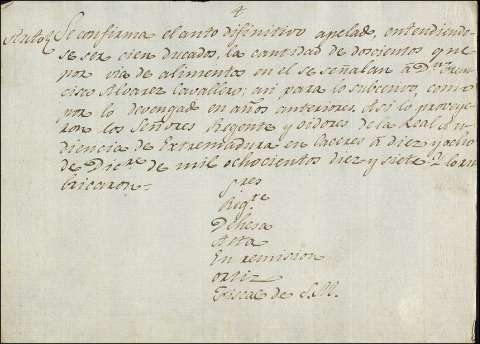 4
Auto Se confirma el auto difinitivo apelado, entendiendo-
se ser cien ducados, la cantidad de doscientos que
por via de alimentos en el se señalan á Dn. Fran-
cisco Alvarez Cavallero; asi para lo subcesivo, como
por lo devengado en años anteriores. Asi lo proveye-
ron los Señores Regente y oidores de la Real Au-
diencia de Extremadura en Caceres á diez y ocho
de Dicre. de mil ochocientos diez y siete y lo ru-
bricaron=
Sres
Regte
Dehesa
En remision
Ortiz
Fiscal de S.M.